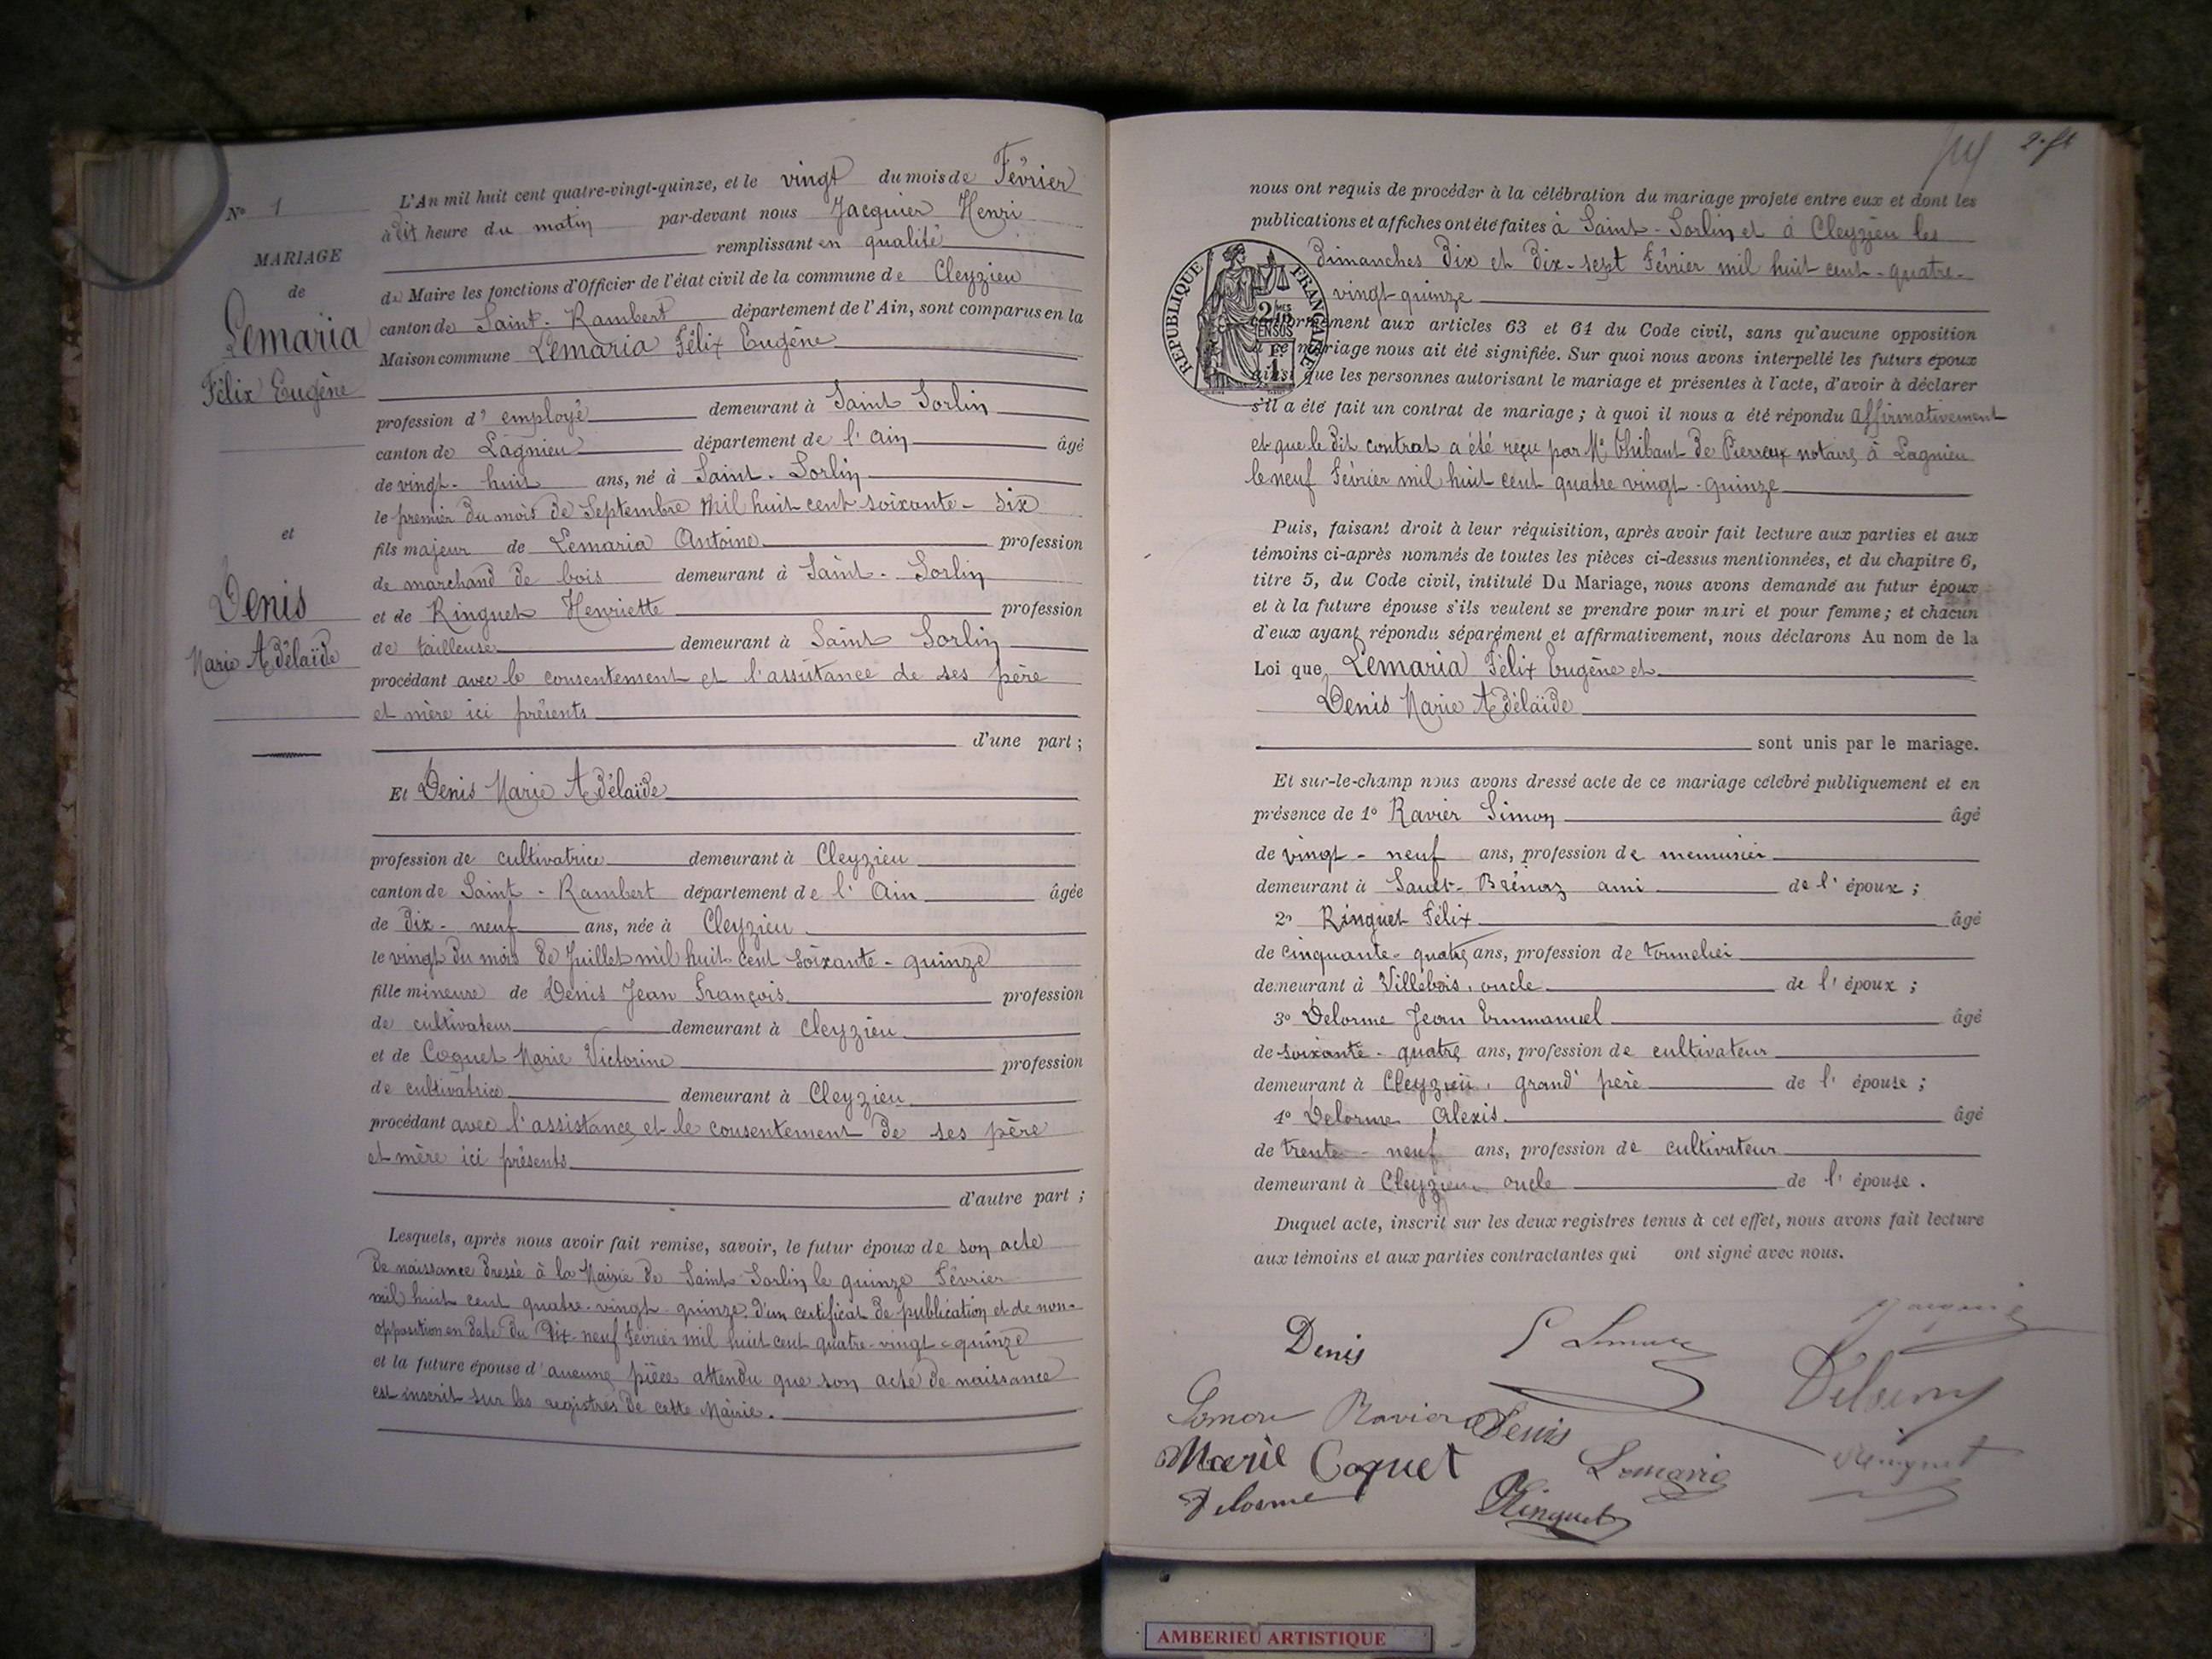 N° 1
MARIAGE
de
Lemaria
Félix Eugène
et
Denis
Marie Adélaïde
L'An mil huit cent quatre-vingt-quinze, et le vingt du mois de Février
à dix heure du matin par-devant nous Jacquier Henri
remplissant en qualité
de Maire les fonctions d'Officier de l'état civil de la commune de Cleyzieu
canton de Saint-Rambert département de l'Ain, sont comparus en la
Maison commune Lemaria Félix Eugène
profession d' employé demeurant à Saint Sorlin
canton de Lagnieu département de l'Ain âgé
de vingt-huit ans, né à Saint-Sorlin
le premier du mois de Septembre mil huit cent soixante-six
fils majeur de Lemaria Antoine profession
de marchand de bois demeurant à Saint-Sorlin
et de Ringuet Henriette profession
de tailleuse demeurant à Saint Sorlin
procédant avec le consentement et l'assistance de ses père
et mère ici présents
d'une part ;
Et Denis Marie Adélaïde
profession de cultivatrice demeurant à Cleyzieu
canton de Saint-Rambert département de l'Ain âgée
de dix-neuf ans, née à Cleyzieu
le vingt du mois de Juillet mil huit cent soixante-quinze
fille mineure de Denis Jean François profession
de cultivateur demeurant à Cleyzieu
et de Coquet Marie Victorine profession
de cultivatrice demeurant à Cleyzieu
procédant avec l'assistance et le consentement de ses père
et mère ici présents
d'autre part ;
Lesquels, après nous avoir fait remise, savoir, le futur époux de son acte
de naissance dressé à la Mairie de Saint-Sorlin le quinze Février
mil huit cent quatre-vingt-quinze. d'un certificat de publication et de non-
opposition en date du dix-neuf Février mil huit cent quatre-vingt-quinze
et la future épouse d'aucune pièce attendu que son acte de naissance
est inscrit sur les registres de cette Mairie.
nous ont requis de procéder à la célébration du mariage projeté entre eux et dont les
publications et affiches ont été faites à Saint-Sorlin et à Cleyzieu les
dimanches dix et dix-sept Février mil huit cent-quatre-
vingt-quinze
REPUBLIQUE FRANÇAISE
conformément aux articles 63 et 64 du Code civil, sans qu'aucune opposition
à ce mariage nous ait été signifiée. Sur quoi nous avons interpellé les futurs époux
ainsi que les personnes autorisant le mariage et présentes à l'acte, d'avoir à déclarer
s'il a été fait un contrat de mariage ; à quoi il nous a été répondu affirmativement
et que le dit contrat a été reçu par Me Thibaut de Pierreux notaire, à Lagnieu
le neuf Février mil huit cent quatre vingt-quinze
Puis, faisant droit à leur réquisition, après avoir fait lecture aux parties et aux
témoins ci-après nommés de toutes les pièces ci-dessus mentionnées, et du chapitre 6,
titre 5, du Code civil, intitulé Du Mariage, nous avons demandé au futur époux
et à la future épouse s'ils veulent se prendre pour mari et pour femme ; et chacun
d'eux ayant répondu séparément et affirmativement, nous déclarons Au nom de la
Loi que Lemaria Félix Eugène et
Denis Marie Adélaïde
sont unis par le mariage.
Et sur-le-champ nous avons dressé acte de ce mariage célébré publiquement et en
présence de 1° Ravier Simon âgé
de vingt-neuf ans, profession de menuisier
demeurant à Sault-Brénaz ami de l'époux ;
2° Ringuet Félix âgé
de cinquante-quatre ans, profession de tonnelier
demeurant à Villebois, oncle de l'époux ;
3° Delorme Jean Emmanuel âgé
de soixante-quatre ans, profession de cultivateur
demeurant à Cleyzieu, grand'père de l'épouse ;
4° Delorme Alexis âgé
de trente-neuf ans, profession de cultivateur
demeurant à Cleyzieu oncle de l'épouse.
Duquel acte, inscrit sur les deux registres tenus à cet effet, nous avons fait lecture
aux témoins et aux parties contractantes qui ont signé avec nous.
Denis
Simon Ravier Denis
Marie Coquet Lemaria Ringuet
Delorme Ringuet
AMBERIEU ARTISTIQUE